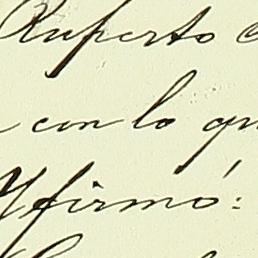 Ruperto
con lo
Yfirmó: